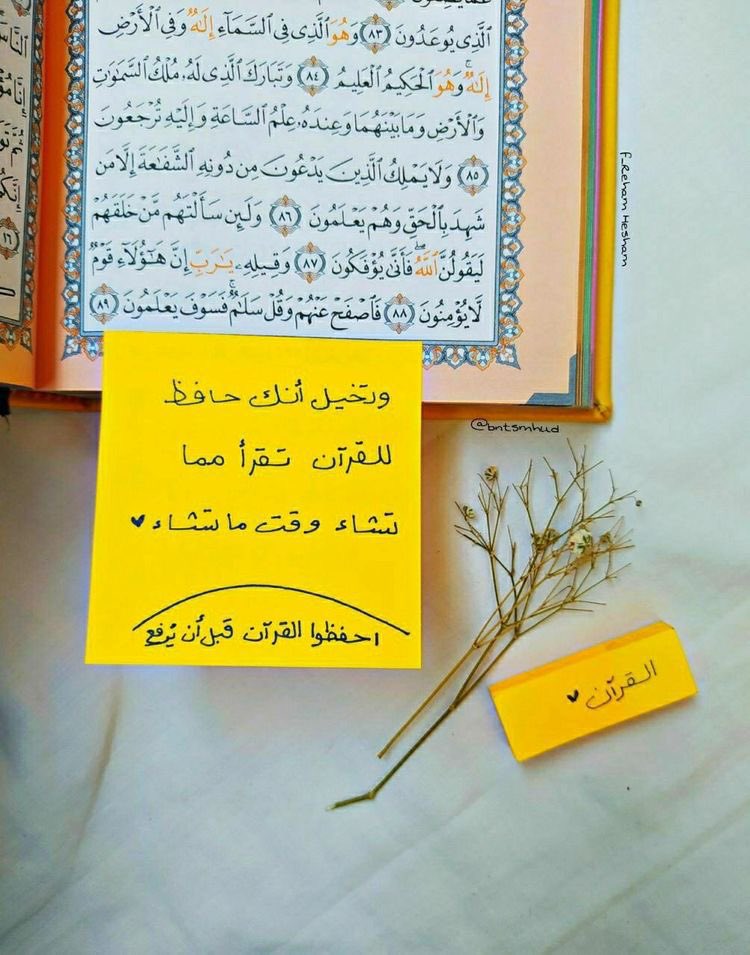 ٱلَّذِى يُوعَدُونَ ﴿٨٣﴾ وَهُوَ ٱلَّذِى فِى ٱلسَّمَآءِ إِلَٰهٌ وَفِى ٱلْأَرْضِ
إِلَٰهٌ ۚ وَهُوَ ٱلْحَكِيمُ ٱلْعَلِيمُ ﴿٨٤﴾ وَتَبَارَكَ ٱلَّذِى لَهُۥ مُلْكُ ٱلسَّمَٰوَٰتِ
وَٱلْأَرْضِ وَمَا بَيْنَهُمَا وَعِندَهُۥ عِلْمُ ٱلسَّاعَةِ وَإِلَيْهِ تُرْجَعُونَ
﴿٨٥﴾ وَلَا يَمْلِكُ ٱلَّذِينَ يَدْعُونَ مِن دُونِهِ ٱلشَّفَٰعَةَ إِلَّا مَن
شَهِدَ بِٱلْحَقِّ وَهُمْ يَعْلَمُونَ ﴿٨٦﴾ وَلَئِن سَأَلْتَهُم مَّنْ خَلَقَهُمْ
لَيَقُولُنَّ ٱللَّهُ ۖ فَأَنَّىٰ يُؤْفَكُونَ ﴿٨٧﴾ وَقِيلِهِۦ يَٰرَبِّ إِنَّ هَٰٓؤُلَآءِ قَوْمٌ
لَّا يُؤْمِنُونَ ﴿٨٨﴾ فَٱصْفَحْ عَنْهُمْ وَقُلْ سَلَٰمٌ ۚ فَسَوْفَ يَعْلَمُونَ ﴿٨٩﴾
وتخيل أنك حافظ
للقرآن تقرأ مما
تشاء وقت ما تشاء ♥
احفظوا القرآن قبل أن يُرفع
القرآن ♥
f_Reham Hesham
@bntsmhud